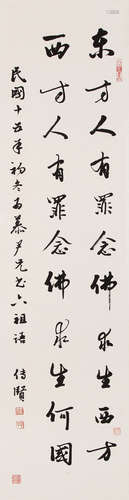 東方人有罪念佛求生西方
西方人有罪念佛求生何國
民國十五年初冬為慕尹兄書六祖語
傳賢